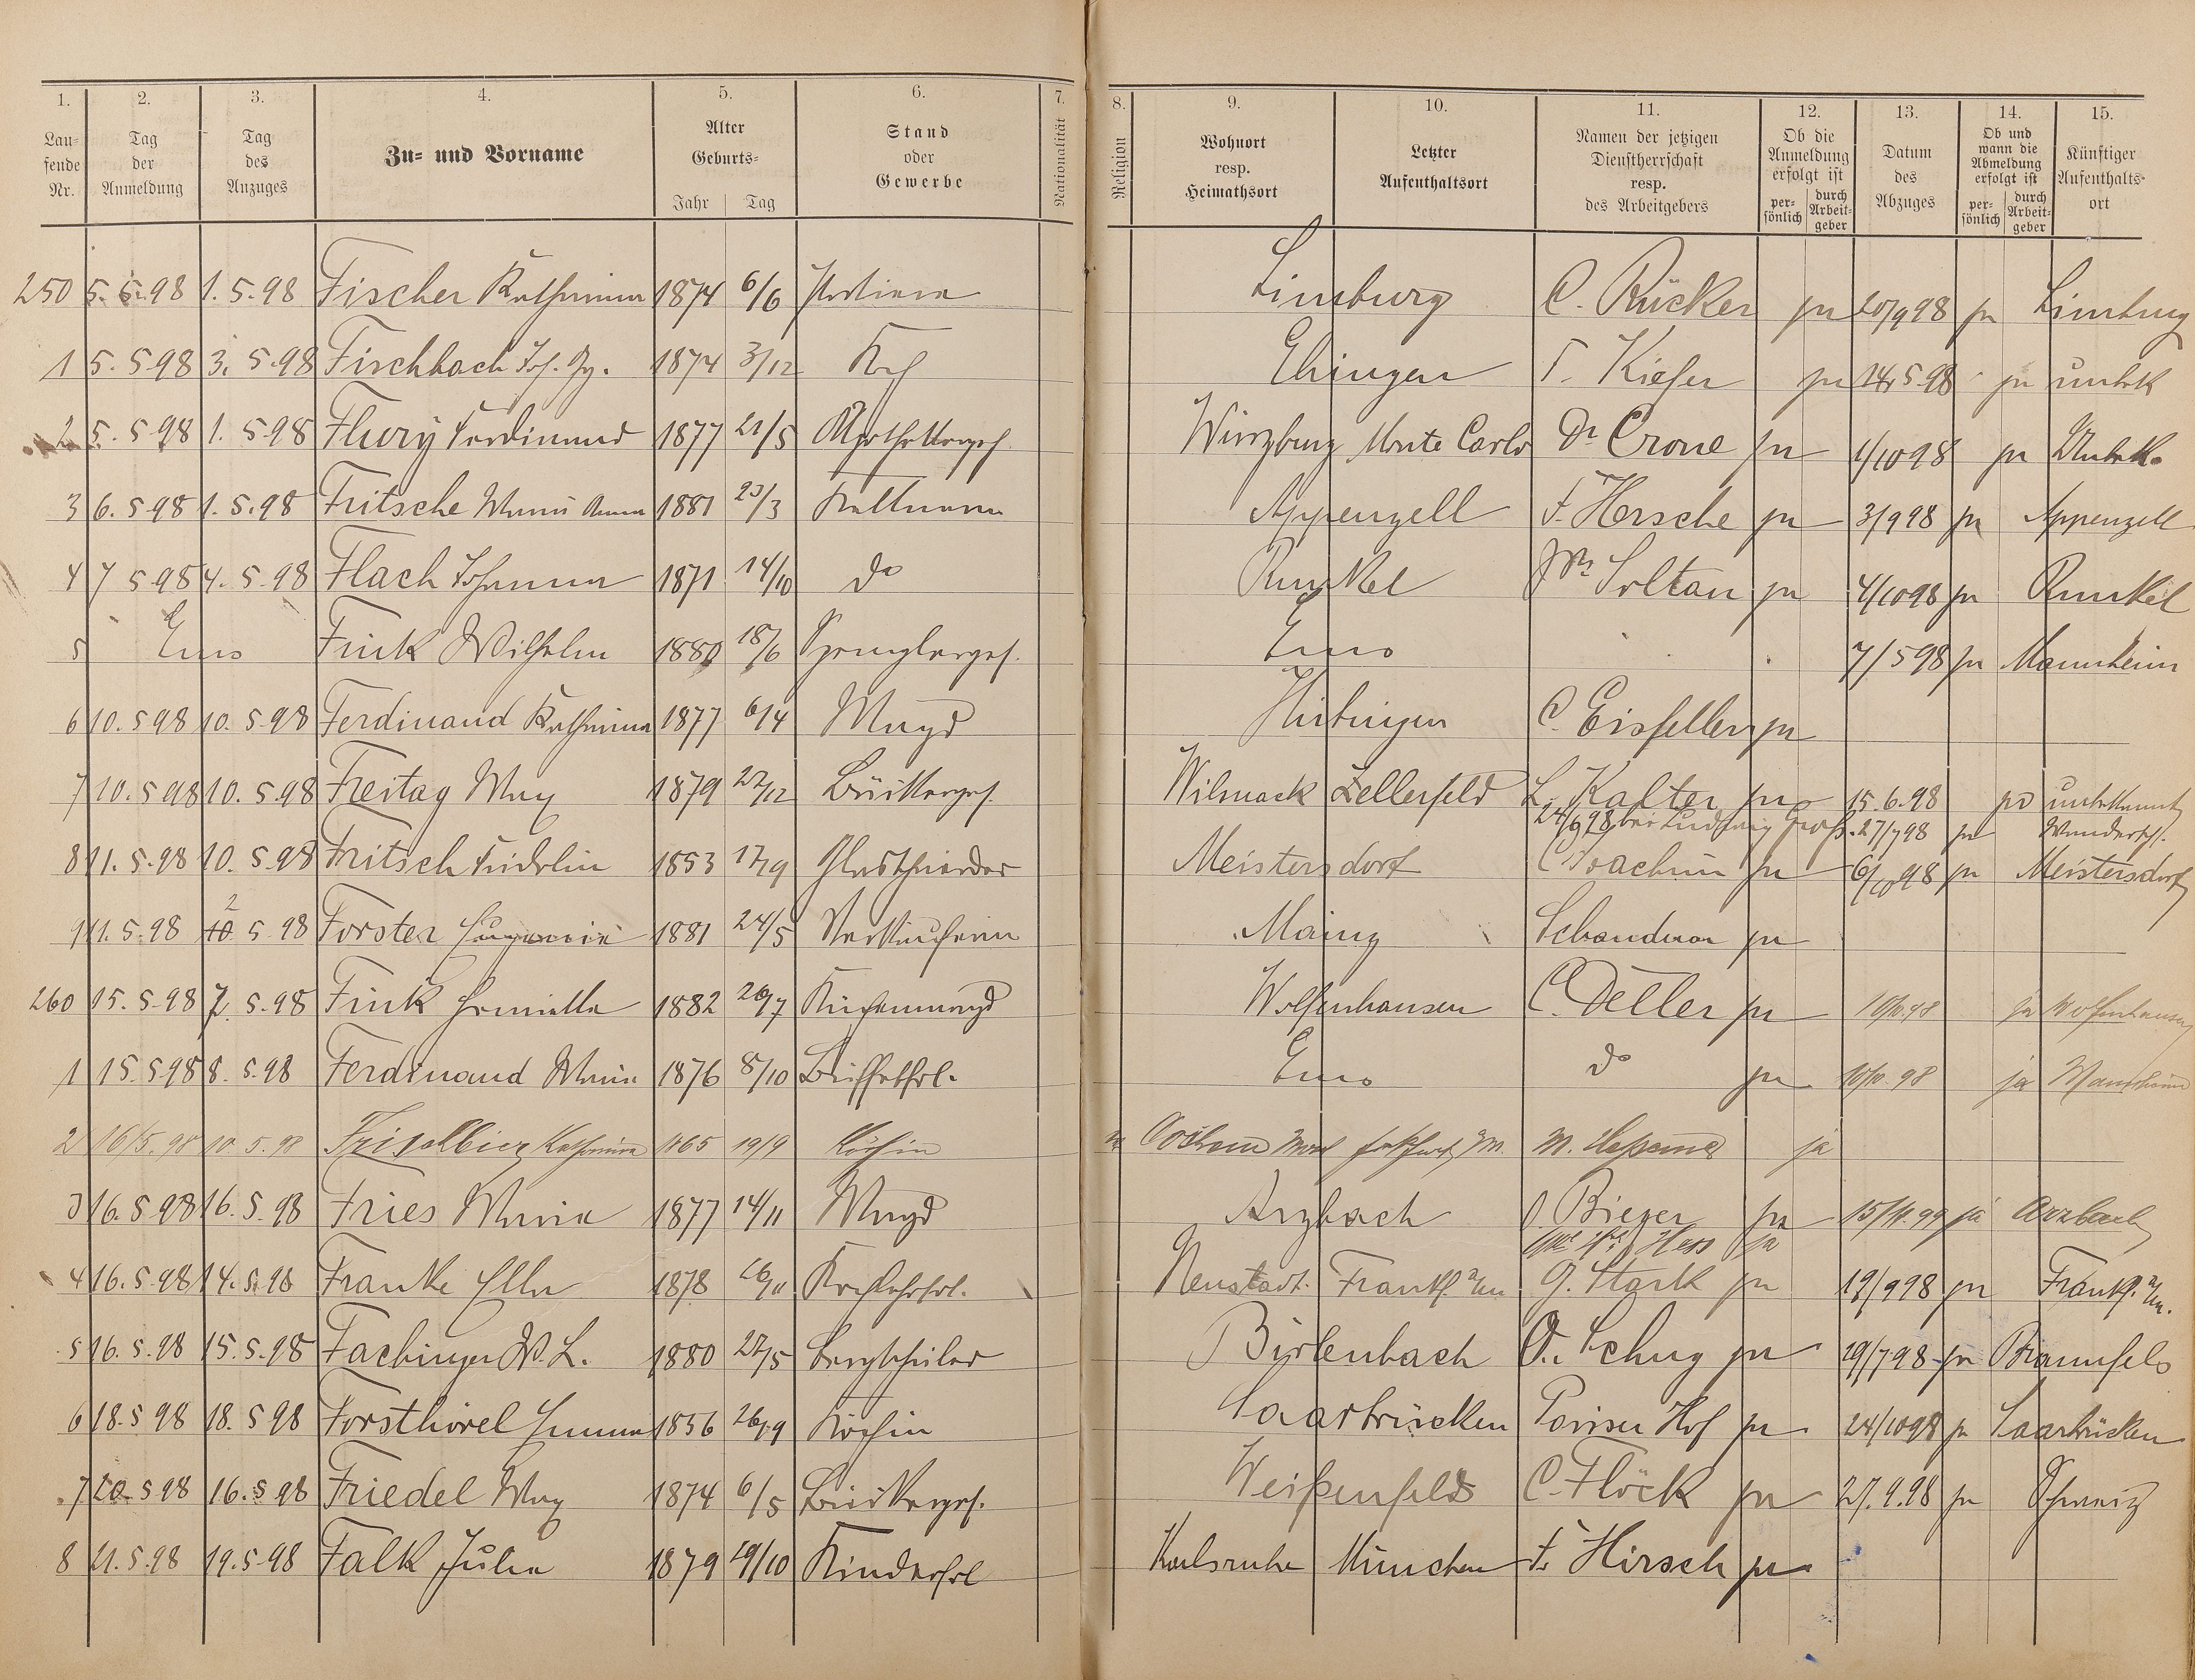 1. 2. 3. 4. 5. 6. 7. 8. 9. 10. 11. 12. 13. 14. 15.
Lau-
fende
Nr.
Tag
der
Anmeldung
Tag
des
Anzuges
Zu- und Vorname
Alter
Geburts-
Jahr Tag
Stand
oder
Gewerbe
Nationalität
Religion
Wohnort
resp.
Heimathsort
Letzter
Aufenthaltsort
Namen der jetzigen
Dienstherrschaft
resp.
des Arbeitgebers
Ob die
Anmeldung
erfolgt ist
per-
sönlich
durch
Arbeit-
geber
Datum
des
Abzuges
Ob und
wann die
Abmeldung
erfolgt ist
per-
sönlich
durch
Arbeit-
geber
Künftiger
Aufenthalts-
ort
250 5.5.98 1.5.98 Fischer Katharina 1874 6/6 Limburg C. Rücker ja 20/9 98 ja Limburg
1 5.5 98 3.5.98 Fischbach Joh. Gg. 1874 3/12 Koch Ehingen F. Kiefer ja 24.5.98 ja unbek
2 5.5 98 1.5 98 Flury Ferdinand 1877 21/5 Würzburg Monte Carlo Dr Crone ja 1/10 98 ja Unbek.
3 6.5 98 1.5.98 Fritsche Maria Anna 1881 23/3 Kellnerin Appenzell F. Hersche ja 3/9 98 ja Appenzell
4 7 5 98 4.5.98 Flach Johanna 1871 14/10 do Runkel Soltau ja 4/10 98 ja Runkel
5 Ems Fink Wilhelm 1880 18/6 Spenglerges. Ems 7/5 98 ja Mannheim
6 10.5 98 10.5.98 Ferdinand Katharina 1877 6/4 Magd C. Eisfeller ja
7 10.5 98 10.5.98 Freitag Max 1879 22/12 Bäckerges. Wilsnack Zellerfeld L. Kalter ja 15.6.98 ja unbekannt
24/6 98 bei Ludwig Groß. 27/7 98 ja Wanderschf.
8 11.5.98 10.5.98 Fritsch Fridolin 1853 17/9 Meistersdorf C Joachim ja 6/10 98 ja Meistersdorf
9 11.5.98 10 2 5 98 Forster 1881 24/5 Verkäuferin Mainz ja
260 15.5.98 7.5.98 Fink 1882 26/7 Küchenmagd Wolfenhausen C. Deller ja 10/10 98 ja Wolfenhausen
1 15.5 98 8.5.98 Ferdinand Maria 1876 8/10 Buffetfrl. Ems do ja 10/10 98 ja Mannheim
2 16/5.98 10.5.98 Katharina 1865 19/9 Köchin ja
3 16.5 98 16.5.98 Fries Maria 1877 14/11 Magd Arzbach J. Bieger ja 15/11 99 ja Arzbach
Hess ja
4 16.5.98 14.5.98 Franke Ella 1878 26/11 Kochlehrfrl. Neustadt. Frankf. a/M. G. Stark ja 19/9 98 ja Frankf. a/M.
5 16.5.98 15.5.98 Fachinger W. L. 1880 27/5 Bergschüler Birlenbach O. Schug ja 19/7 98 ja Braunfels
6 18.5 98 18.5 98 Forsthövel Emma 1856 26/9 Köchin Saarbrücken Pariser Hof ja 24/10 98 ja Saarbrücken
7 20.5 98 16.5 98 Friedel Max 1874 6/5 Bäckerges. Weißenfels C. Flöck ja 27.9.98 ja Schweiz
8 21.5.98 19.5.98 Falk Julia 1879 29/10 Kinderfrl Karlsruhe München F. Hirsch ja